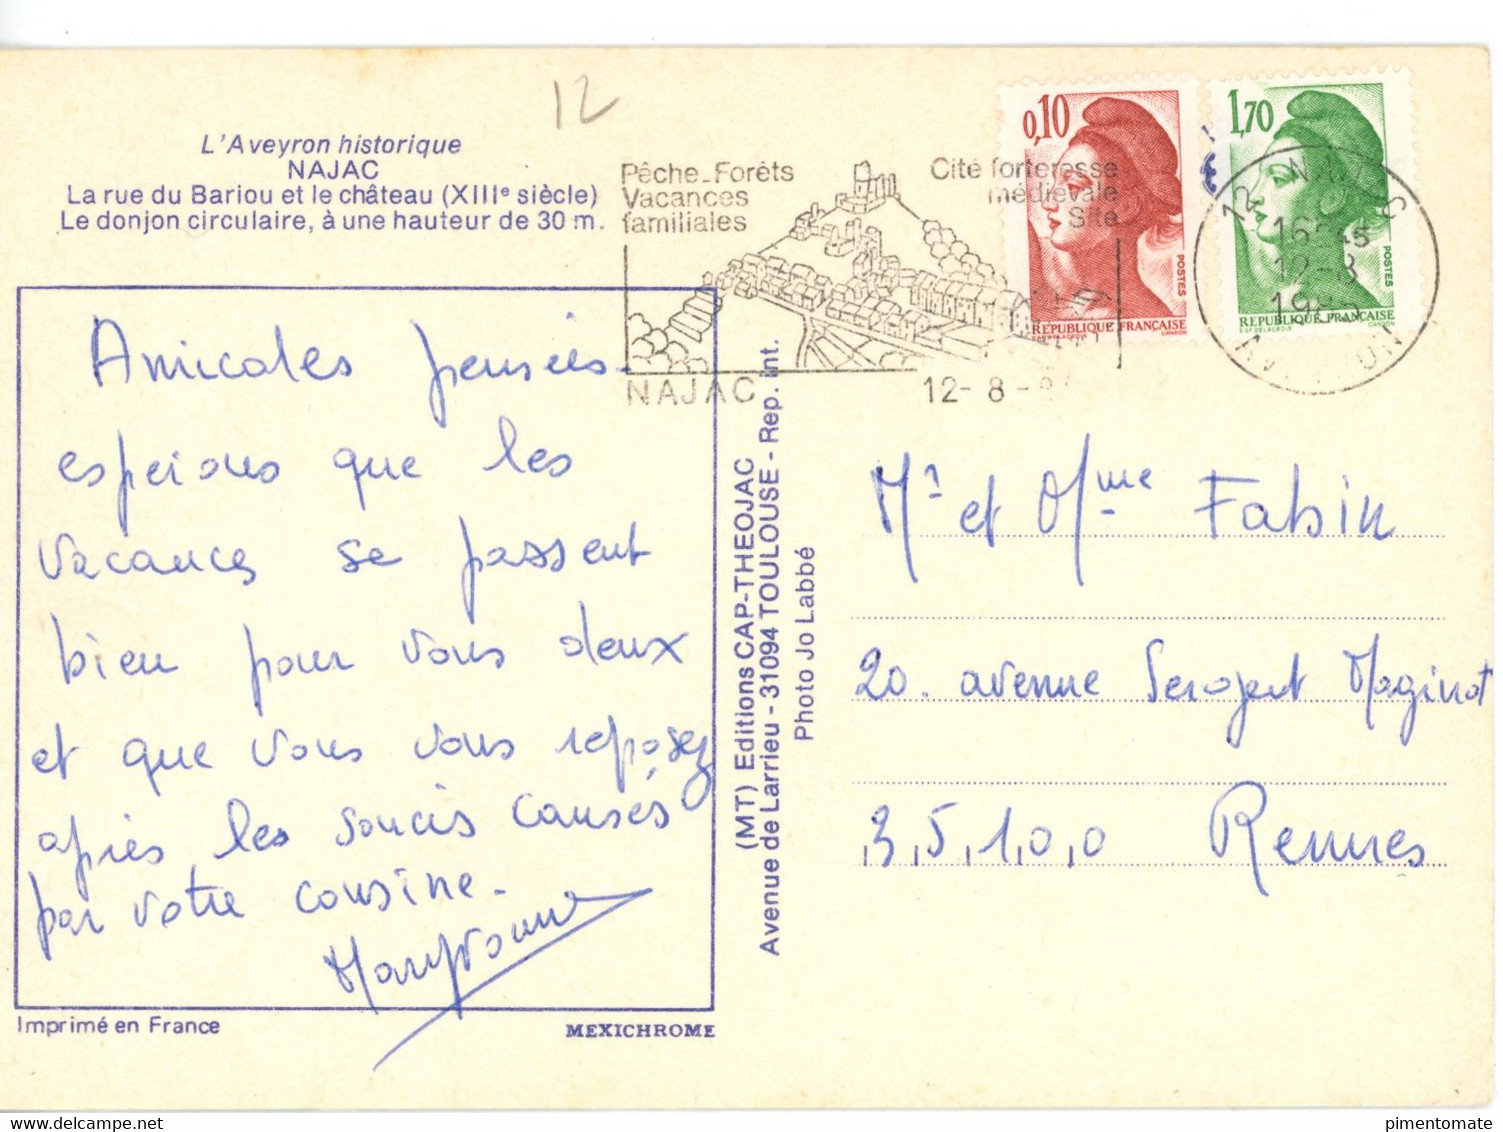 12
L'Aveyron historique
NAJAC
La rue du Bariou et le château (XIIIe siècle)
Le donjon circulaire, à une hauteur de 30 m.
Pêche-Forêts
Vacances
familiales
Cité forteresse
médiévale
Site
NAJAC
12-8-
0,10
POSTES
REPUBLIQUE FRANÇAISE
1,70
POSTES
REPUBLIQUE FRANÇAISE
12 NAJAC
16H45
12-8
1985
AVEYRON
Amicales pensées.
espérons que les
vacances se passent
bien pour vous deux
et que vous vous reposez
après les soucis causés
par votre cousine.
(MT) Editions CAP-THEOJAC
Avenue de Larrieu - 31094 TOULOUSE - Rep. int.
Photo Jo Labbé
Mr et Mme Fabin
20. avenue Sergent Maginot
35100 Rennes
Imprimé en France
MEXICHROME
pimentomate